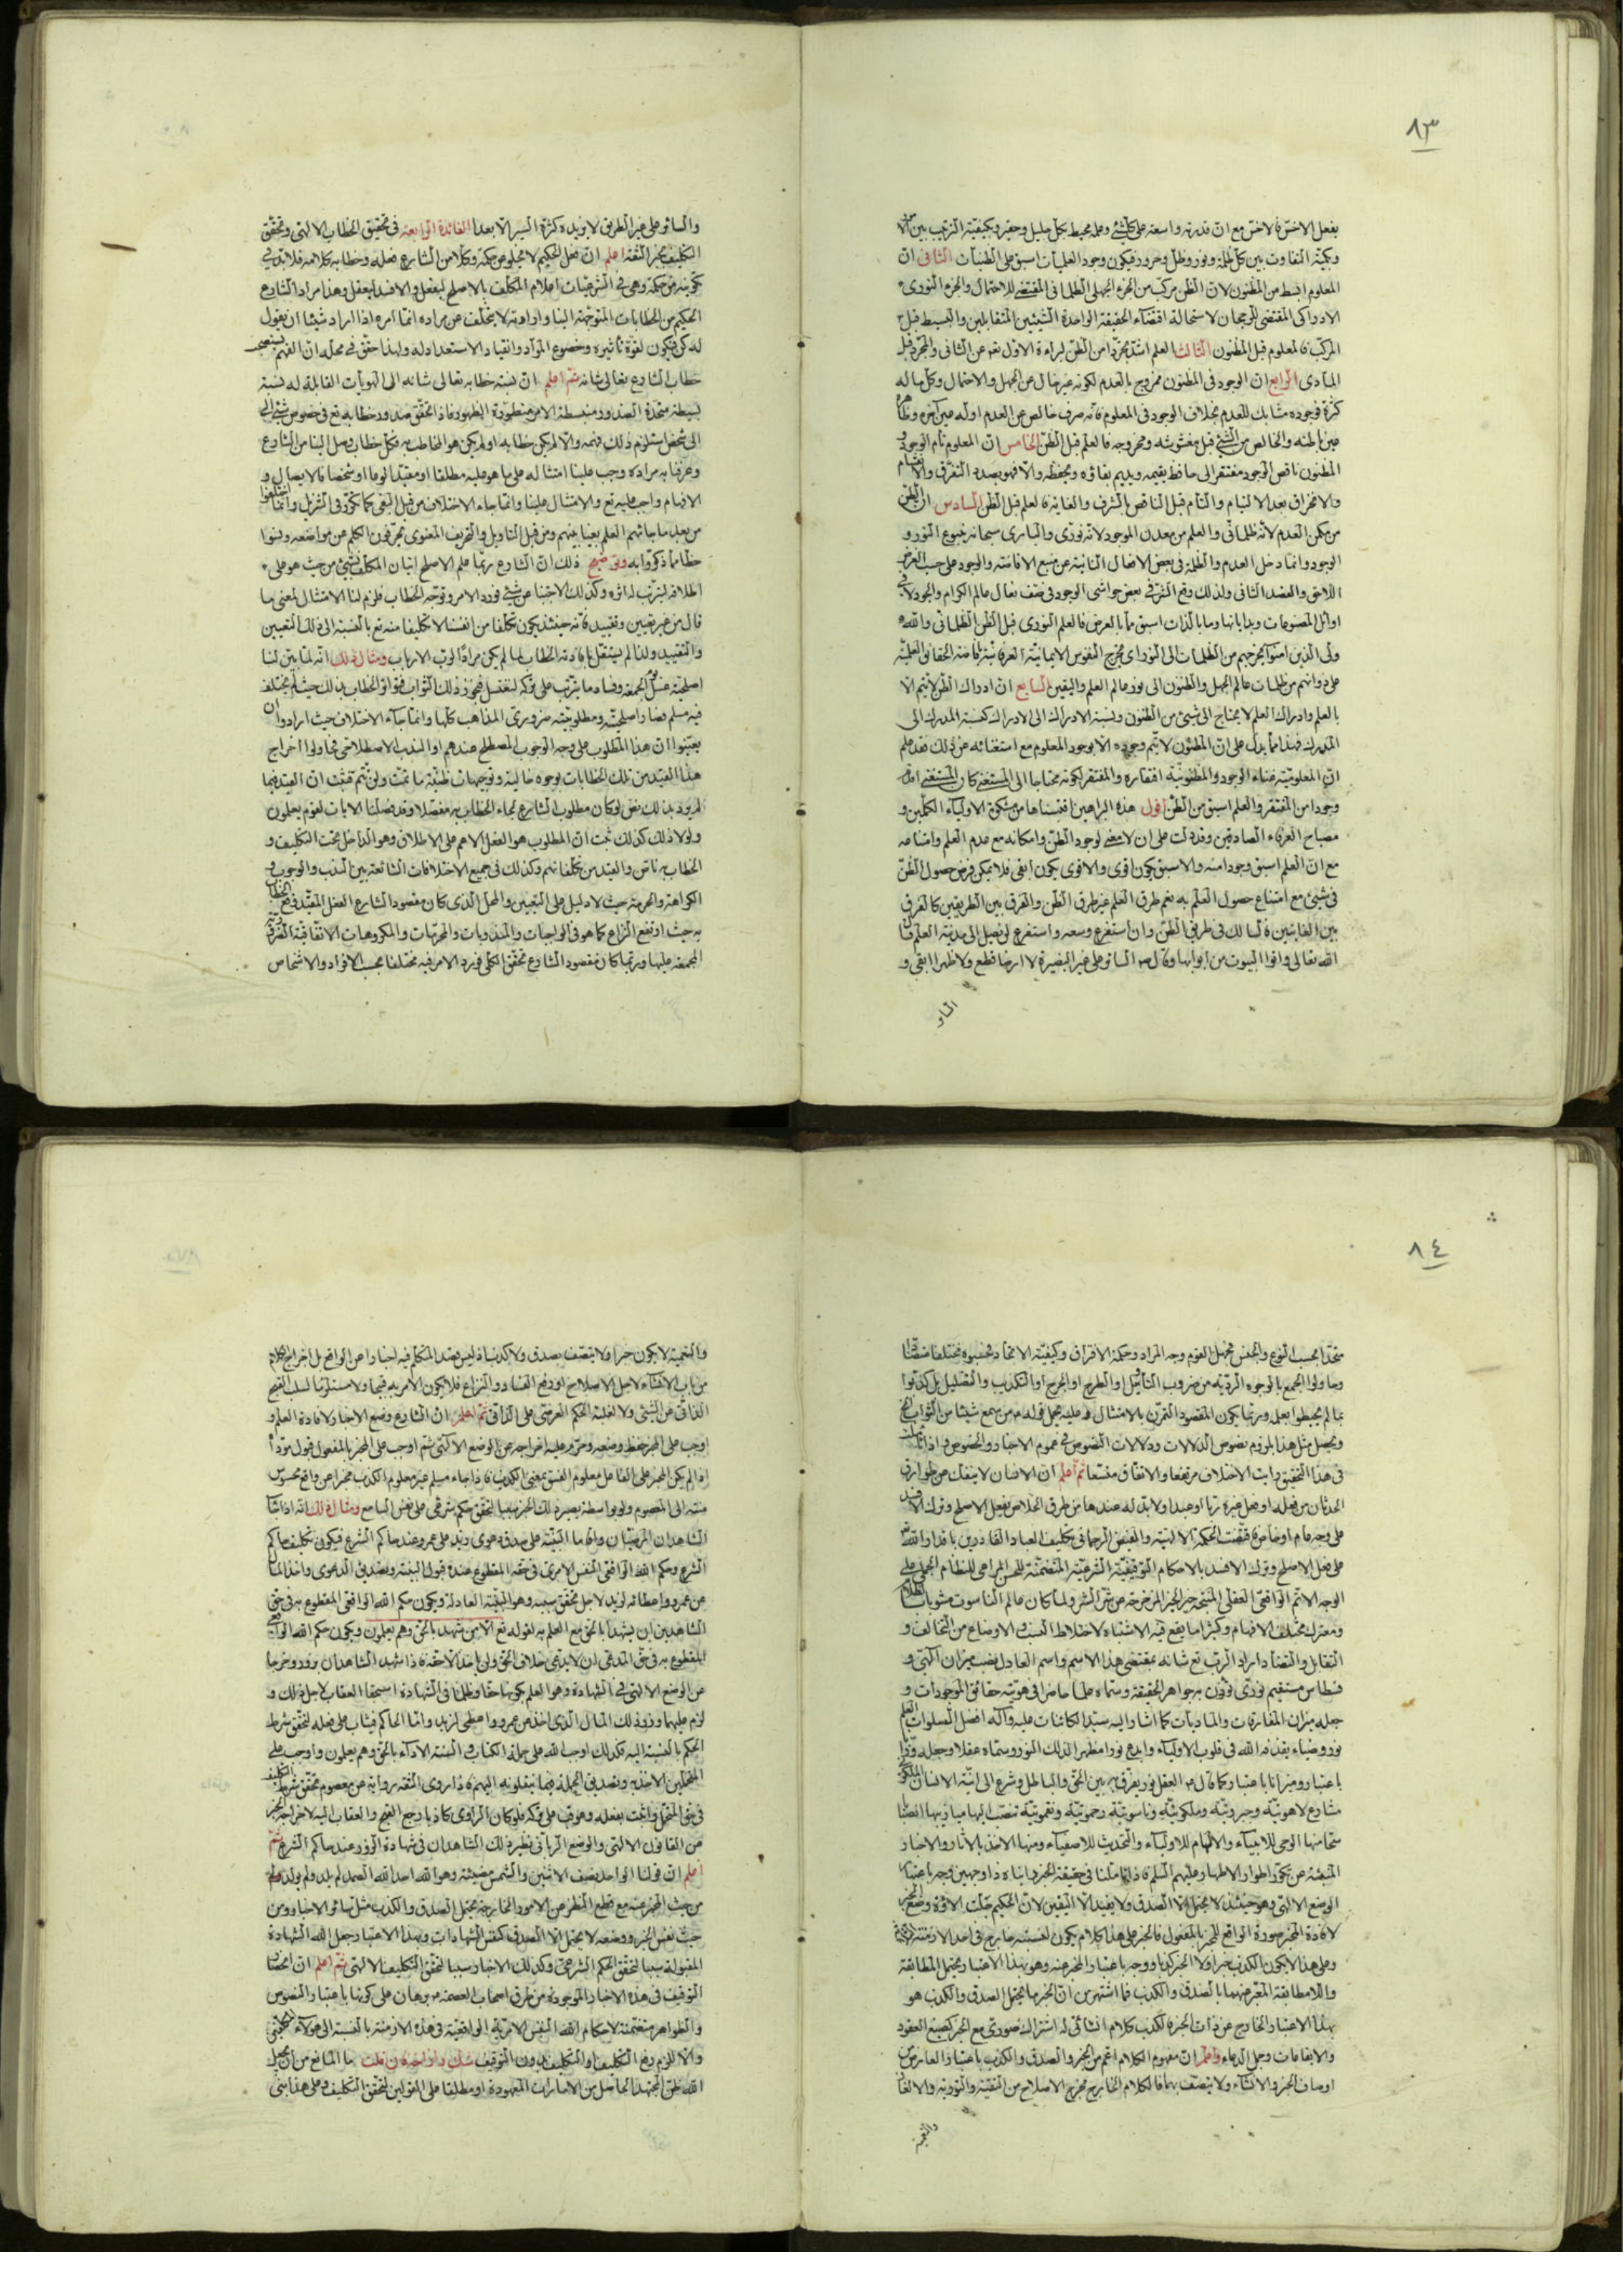 ٨٣
يفعل الاخسّ فالاخسّ مع انّ قدرته واسعة على كلّ شئ وعلمه محيط بكلّ جليل وحقير وبكيفيّة الترتيب بين
وبكيّة التفاوت بين كلّ ظلمة ونور وظلّ وحرور فيكون وجود العلميات اسبق على الظنيات الثانى انّ
المعلوم ابسط من المظنون لانّ الظنّ مركّب من الجزء الجهلى الظلمانى المقتضى للاحتمال والجزء النورى
الادراكى المقتضى للرجحان لاستحالة اقتضاء الحقيقة الواحدة الشيئين المتقابلين والبسيط قبل
المركّب فالمعلوم قبل المظنون الثالث العلم اشدّ تجرّدا من الظنّ لبراءة الاوّل عن الثانى والمجرّد قبل
المادى الرابع انّ الوجود فى المظنون ممزوج بالعدم لكونه غير خال عن الجهل والاحتمال وكلّ ما له
كثرة فوجوده متشابك للعدم بخلاف الوجود فى المعلوم فانّه صرف خالص عن العدم اوّله عين آخره
عين باطنه والخالص من الشئ قبل مغشوشه وممزوجه فالعلم قبل الظنّ الخامس انّ المعلوم تامّ الوجود و
المظنون ناقص الوجود مفتقر الى حافظ يقيمه ويديم بقاؤه ويحفظه والّا فهو بصدد التفرّق
والانخراق بعد الالتيام والتامّ قبل الناقص بالشرف والغاية فالعلم قبل الظنّ السادس انّ الظنّ
من مكمن العدم لانّه ظلمانى والعلم من معدن الوجود لانّه نورى والبارى سبحانه ينبوع النور و
الوجود وانّما دخل العدم والظلمة فى بعض الافعال الثانية عن منبع الافاضة والوجود على حسب العرض
اللاحق والقصد الثانى ولذلك وقع الشرّ فى بعض حواشى الوجود فى صفّ نعال عالم الكرام والجود لا فى
اوائل المصنوعات وبداياتها وما بالذات اسبق ممّا بالعرض فالعلم النورى قبل الظنّ الظلمانى والله
ولى الذين امنوا يخرجهم من الظلمات الى النور اى يخرج النفوس الايمانيّة العرفانيّة بافاضة الحقائق العلميّة
على ذواتهم من ظلمات عالم الجهل والظنون الى نور عالم العلم واليقين السابع انّ ادراك الظنّ لا يتمّ الّا
بالعلم وادراك العلم لا يحتاج الى شئ من الظنون ونسبة الادراك الى الادراك كنسبة المدرك الى
المدرك فهذا ممّا يدلّ على انّ المظنون لا يتمّ وجوده الّا بوجود المعلوم مع استغنائه عن ذلك فقد علم
انّ المعلوميّة غناء الوجود والمظنونيّة افتقاره والمفتقر لكونه محتاجا الى المستغنى كان المستغنى اقدم
وجودا من المفتقر والعلم اسبق من الظنّ اقول هذه البراهين اقتبسناها من مشكوة الاولياء الكاملين و
مصباح العرفاء الصادقين وقد دلّت على ان لا معنى لوجود الظنّ وامكانه مع عدم العلم وامتناعه
مع انّ العلم اسبق وجودا منه والاسبق يكون اقوى والاقوى يكون ابقى فلا يمكن فرض حصول الظنّ
فى شئ مع امتناع حصول العلم به نعم طرق العلم غير طرق الظنّ والفرق بين الطريقين كالفرق
بين الغايتين فالسالك فى طريق الظنّ وان استفرغ وسعه واستفرغ لن يصل الى مدينة العلم
الله تعالى واتوا البيوت من ابوابها وقال السائر على غير البصيرة لا ارضا قطع ولا ظهرا ابقى و
والسائر على غير الطريق لا يزيده كثرة السير الّا بعدا الفائدة الرابعة فى تحقيق الخطاب الالهى وتحقّق
التكليف بخبر الثقة اعلم انّ فعل الحكيم لا يخلو عن حكمة وكلامن الشارع فعله وخطابه كلامه فلا بدّ فى
تكوينه من حكمة وهى فى الشرعيّات اعلام المكلّف بالاصلح ليفعل والافسد ليعقل وهذا مراد الشارع
الحكيم من الخطابات المتوجّهة الينا وارادته لا يتخلّف عن مراده انّما امره اذا اراد شيئا ان يقول
له كن فيكون لقوّة تأثيره وخضوع الموادّ وانقياد الاستعداد له ولهذا حقّق فى محلّه انّ الفهم يستتبع
خطاب الشارع تعالى شانه ثمّ اعلم انّ نسبة خطابه تعالى شانه الى الهويات القابلة له نسبة
بسيطة متّحدة الصدور منبسطة الامر منطوية الظهور فاذا تحقّق صدور خطابه تع فى خصوص شئ
الى شخص استلزم ذلك فهمه والّا لم يكن خطابه او لم يكن هو المخاطب به فكلّ خطاب وصل الينا من الشارع
وعرفنا به مراده وجب علينا امتثاله على ما هو عليه مطلقا او مقيّدا نوعا او شخصا فالايصال و
الافهام واجب عليه تع والامتثال علينا وانّما جاء الاختلاف من قبل البغى كما تكرّر فى التنزيل وما اختلفوا
من بعد ما جائهم العلم بغيا بينهم ومن قبل التأويل والتحريف المعنوى يحرّفون الكلم عن مواضعه ونسوا
حظّا ممّا ذكّروا به وتوضيح ذلك انّ الشارع ربّما علم الاصلح اتيان المكلّف بشئ من حيث هو على
اطلاقه ليترتّب له اثره وكذلك الاجتناب عن شئ فورد الامر وتوجّه الخطاب فلزم لنا الامتثال بمعنى ما
قال من غير تعيين وتقييد فانّه حينئذ يكون تكلّفا من انفسنا لا تكليفا منه تع بالنسبة الى ذلك التعيين
والتقييد ولذا لم يستقل بافادته الخطاب لما لم يكن مرادا لربّ الارباب ومثال ذلك انّه لمّا بيّن لنا
اصلحيّة غسل الجمعة وفساد ما يترتّب على تركه ليغتسل فيحوز ذلك الثواب فتواتر الخطاب بذلك حيث لم يختلف
فيه مسلم فضاء اصلحيّته ومطلوبيّته ضرورى المذاهب كلّها وانّما جاء الاختلاف حيث ارادوا ان
يعيّنوا انّ هذا المطلوب على وجه الوجوب المصطلح عندهم او الندب الاصطلاحى فحاولوا اخراج
هذا القيد من تلك الخطابات بوجوه خالية وتوجيهات ظنيّة ما تمّت ولن تتمّ فثبت انّ القيد فيما
لم يرد بذلك نصّ لو كان مطلوب الشارع لجاء الخطاب به مفصّلا وقد فصّلنا الايات لقوم يعلمون
ولولا ذلك كذلك ثبت انّ المطلوب هو الفعل الاعم على الاطلاق وهو الداخل تحت التكليف و
الخطاب به ناصّ والقيد من تكلّفاتهم وكذلك فى جميع الاختلافات الشائعة بين الندب والوجوب و
الكراهة والحرمة حيث لا دليل على التعيين والمحلّ الذى كان مقصود الشارع الفعل المقيّد وقع الخطاب
به حيث ارتفع النزاع كما هو فى الواجبات والمندوبات والمحرّمات والمكروهات الاتّفاقيّة
المجمعة عليها وربّما كان مقصود الشارع تحقّق الكلّى فيرد الامر فيه مختلفا بحسب الافراد والاشخاص
٨٤
متّحدا بحسب النوع والجنس فجهل القوم وجه المراد وحكمة الافتراق وكيفيّة الاتحاد فحسبوه مختلفا متضادّا
وحاولوا الجمع بالوجوه الرديّة من ضروب التأويل والطرح او الجرح او التكذيب والتضليل بل كذّبوا
بما لم يحيطوا بعلمه وربّما يكون المقصود التمرّن بالامتثال وعليه يحمل قوله من سمع شيئا من الثواب الخ
ويحصل مثل هذا بلزوم نصوص الدلالات ودلالات النصوص فى عموم الاخبار والخصوص واذا تأمّلت
فى هذا التحقيق رايت الاختلاف مرتفعا والاتفاق متّسعا ثمّ اعلم انّ الانسان لا ينفكّ عن طوارق
الحدثان من فعله او فعل غيره ربّا او عبدا ولا بدّ له عندها من طرق الخلاص بفعل الاصلح وترك الافسد
على وجه عام او خاص فاقتضت الحكمة الالهيّة والفيض الرحمانى تكليف العباد القادرين باقدار الله
على فعل الاصلح وترك الافسد بالاحكام التوقيفيّة الشرعيّة المتضمّنة للنظام الجملى على
الوجه الاتمّ الواقعى العقلى المنتج خير الخير المزحزح عن شرّ الشر ولمّا كان عالم الناسوت مشوبا بالظلام
ومعترك مختلف الافهام وكثيرا ما يقع فيه الاشتباه لاختلاط النسب والاوضاع من التخالف و
التقابل والتضادّ اراد الربّ تع شانه بمقتضى هذا الاسم واسم العادل نصب ميزان الهى و
قسطاس مستقيم نورى توزن به جواهر الحقيقة وسمّاه علما حاضرا فى هويّة حقائق الموجودات و
جعله ميزان المفارقات والماديات كما اشار اليه سيّد الكائنات عليه وآله افضل الصلوات العلم
نور وضياء يقذفه الله فى قلوب الاولياء وابدع نورا مظهرا لذلك النور وسمّاه عقلا وجعله نورا
باعتبار وميزانا باعتبار كما قال العقل نور يفرّق به بين الحقّ والباطل وشرع الى انيّة الانسان
مشارع لاهوتيّة وجبروتيّة وملكوتيّة وناسوتيّة رحموتيّة ونقموتيّة تنصب اليها ميازيبها انصبابا
سحّا منها الوحى للانبياء والالهام للاولياء والتحديث للاصفياء ومنها الاخذ بالاثار والاخبار
المنبعثة عن تحرّى اطوار الاطهار عليهم السلام فاذا تأمّلنا فى حقيقة الخبر وجدناه ذا وجهين وجه باعتبار
الوضع الالهى وهو حينئذ لا يحتمل الّا الصدق ولا يفيد الّا اليقين لانّ الحكيم جلّت الاؤه وضع الخبر
لافادة المخبر صورة الواقع للمخبر بالمفعول فالخبر على هذا كلام يكون لنسبته خارج فى احد الازمنة
وعلى هذا لا يكون الكذب خبرا ولا الخبر كذبا ووجه باعتبار المخبر عنه وهو بهذا الاعتبار ويحتمل المطابقة
واللامطابقة المعبّر عنهما بالصدق والكذب فما اشتهر من انّ الخبر ما يحتمل الصدق والكذب هو
بهذا الاعتبار الخارج عن ذات الخبر فالكذب كلام انشائى له اشتراك صورى مع الخبر كصيغ العقود
والايقاعات وجمل الدعاء واعلم انّ مفهوم الكلام اعم من الخبر والصدق والكذب باعتبار العارض من
اوصاف الخبر والانشاء ولا يتّصف بها فالكلام الخارج مخرج الاصلاح من التقيّة والتورية والالغاز
والتعمية لا يكون خبرا ولا يتّصف بصدق ولا كذب اذ ليس قصد المتكلّم فيه اخبارا عن الواقع بل اخراج الكلام
من باب الانشاء لاجل الاصلاح او دفع الفساد والنزاع فلا يكون الامر به قبيحا ولا مستلزما لسلب القبح
الذاتى عن الشئ ولا لغلبة الحكم العرضى على الذاتى ثمّ اعلم انّ الشارع وضع الاخبار لافادة العلم و
اوجب على المخبر حفظ وضعه وحرّم عليه اخراجه عن الوضع الالهى ثمّ اوجب على المخبر بالمفعول قبول مؤدّاه
اذا لم يكن المخبر على الفاعل معلوم الفسق بمعنى الكذب فاذا جاء مسلم غير معلوم الكذب مخبرا عن واقع محسوس
منته الى المعصوم ولو بواسطة يصير ذلك الخبر سببا لتحقّق حكم شرعى على نفس السامع ومثال ذلك انّه اذا شهد
الشاهدان المرضيّان واقاما البيّنة على صدق دعوى زيد على عمرو عند حاكم الشرع فيكون تكليف حاكم
الشرع وحكم الله الواقعى النفس الامرى فى حقّه المقطوع عنده قبول البيّنة وتصديق الدعوى واخذ المال
من عمرو واعطائه لزيد لاجل تحقّق سببه وهو البيّنة العادلة ويكون حكم الله الواقعى المقطوع به فى حقّ
الشاهدين ان يشهدا بالحقّ مع العلم به لقوله تع الّا من شهد بالحقّ وهم يعلمون ويكون حكم الله الواقعى
المقطوع به فى حقّ المدّعى ان لا يدّعى خلاف الحقّ ولن ياخذ الّا حقّه فاذا شهد الشاهدان بزور وخرجا
عن الوضع الالهى فى الشهادة وهو العلم بكونها حقّا وظلما فى الشهادة استحقّا العقاب لاجل ذلك و
لزم عليهما وزر ذلك المال الذى اخذ من عمرو واعطى لزيد وامّا الحاكم فيثاب على فعله لتحقّق شرط
الحكم بالنسبة اليه فكذلك اوجب الله على حملة الكتاب والسنّة الاداء بالحقّ وهم يعلمون واوجب على
المتحمّلين الاخذ وتصديق الحملة فيما ينقلونه اليهم فاذا روى الثقة رواية عن معصوم تحقّق شرط التكليف
فى حقّ المتحمّل واثبت بفعله وعوقب على تركه فلو كان الراوى كاذبا رجع القبح والعقاب اليه لاخراجه الخبر
عن القانون الالهى والوضع الربانى نظير ذلك الشاهدان فى شهادة الزور عند حاكم الشرع ثمّ
اعلم انّ قولنا الواحد نصف الاثنين والشمس مضيئة وهو الله احد الله الصمد لم يلد ولم يولد
من حيث الخبر عنه مع قطع النظر عن الامور الخارجة يحتمل الصدق والكذب مثل سائر الاخبار ومن
حيث نفس الخبر ووضعه لا يحتمل الّا الصدق كنفس الشهادات وبهذا الاعتبار جعل الله الشهادة
المقبولة سببا لتحقّق الحكم الشرعى وكذلك الاخبار سببا لتحقّق التكليف الالهى ثمّ اعلم انّ انحصار
التوقيف فى هذه الاخبار الموجودة من طرق اصحاب العصمة برهان على كونها باعتبار النصوص
والظواهر متضمّنة لاحكام الله النفس الامريّة الواقعيّة فى هذه الازمنة بالنسبة الى هؤلاء المكلّفين
والّا للزم رفع التكليف او التكليف بدون التوقيف شكّ وازاحة فان قلت ما المانع من ان يجعل
الله ظنّ المجتهد الحاصل من الامارات المعهودة او مطلقا على القولين لتحقّق التكليف وعلى هذا ينبنى